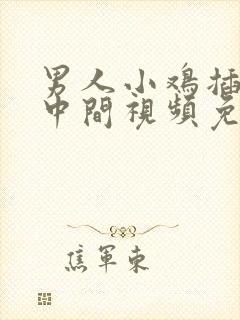 男人小鸡插
中間視頻免
焦軍東